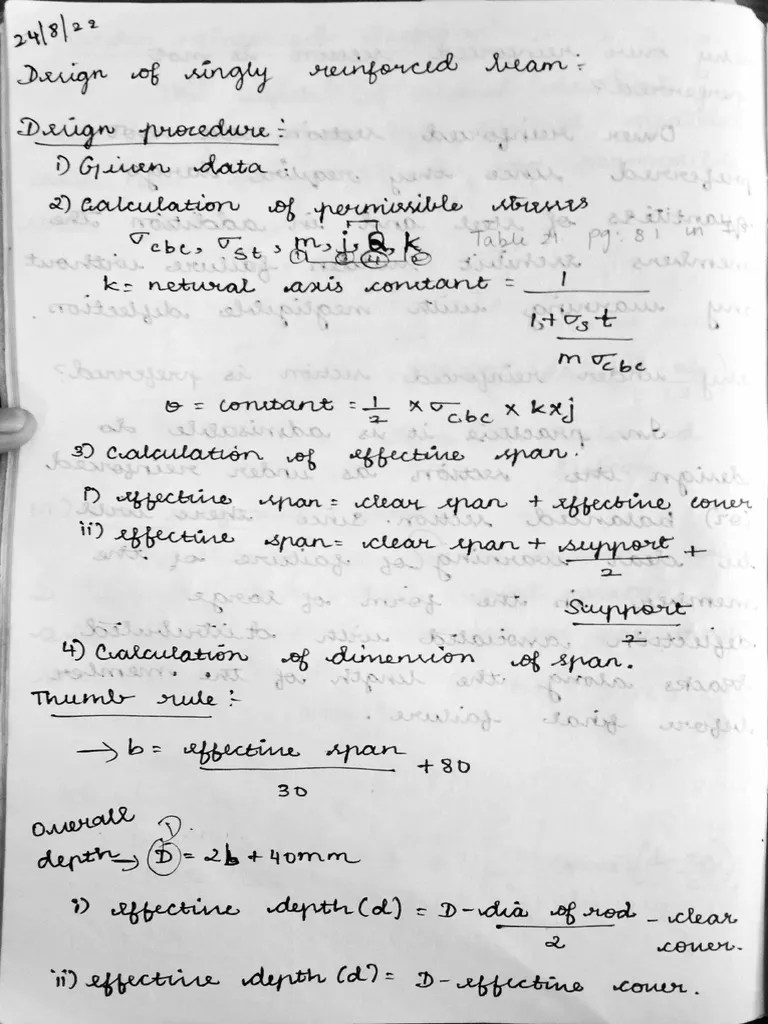 24/8/22
Design of singly reinforced beam:-
Design procedure:-
1) Given data:
2) Calculation of permissible stresses
σcbc, σst, m, j, Q, k Table 21 pg: 81 in
① ③ ④ ②
k = netural axis constant = 1 / (1 + σst / (m σcbc))
θ = constant = 1/2 × σcbc × k × j
3) Calculation of effective span:
i) effective span = clear span + effective cover
ii) effective span = clear span + support/2 +
support/2
4) Calculation of dimension of span.
Thumb rule:-
→ b = effective span / 30 + 80
Overall D
depth → D = 2b + 40mm
i) effective depth (d) = D - dia of rod / 2 - clear
cover.
ii) effective depth (d) = D - effective cover.